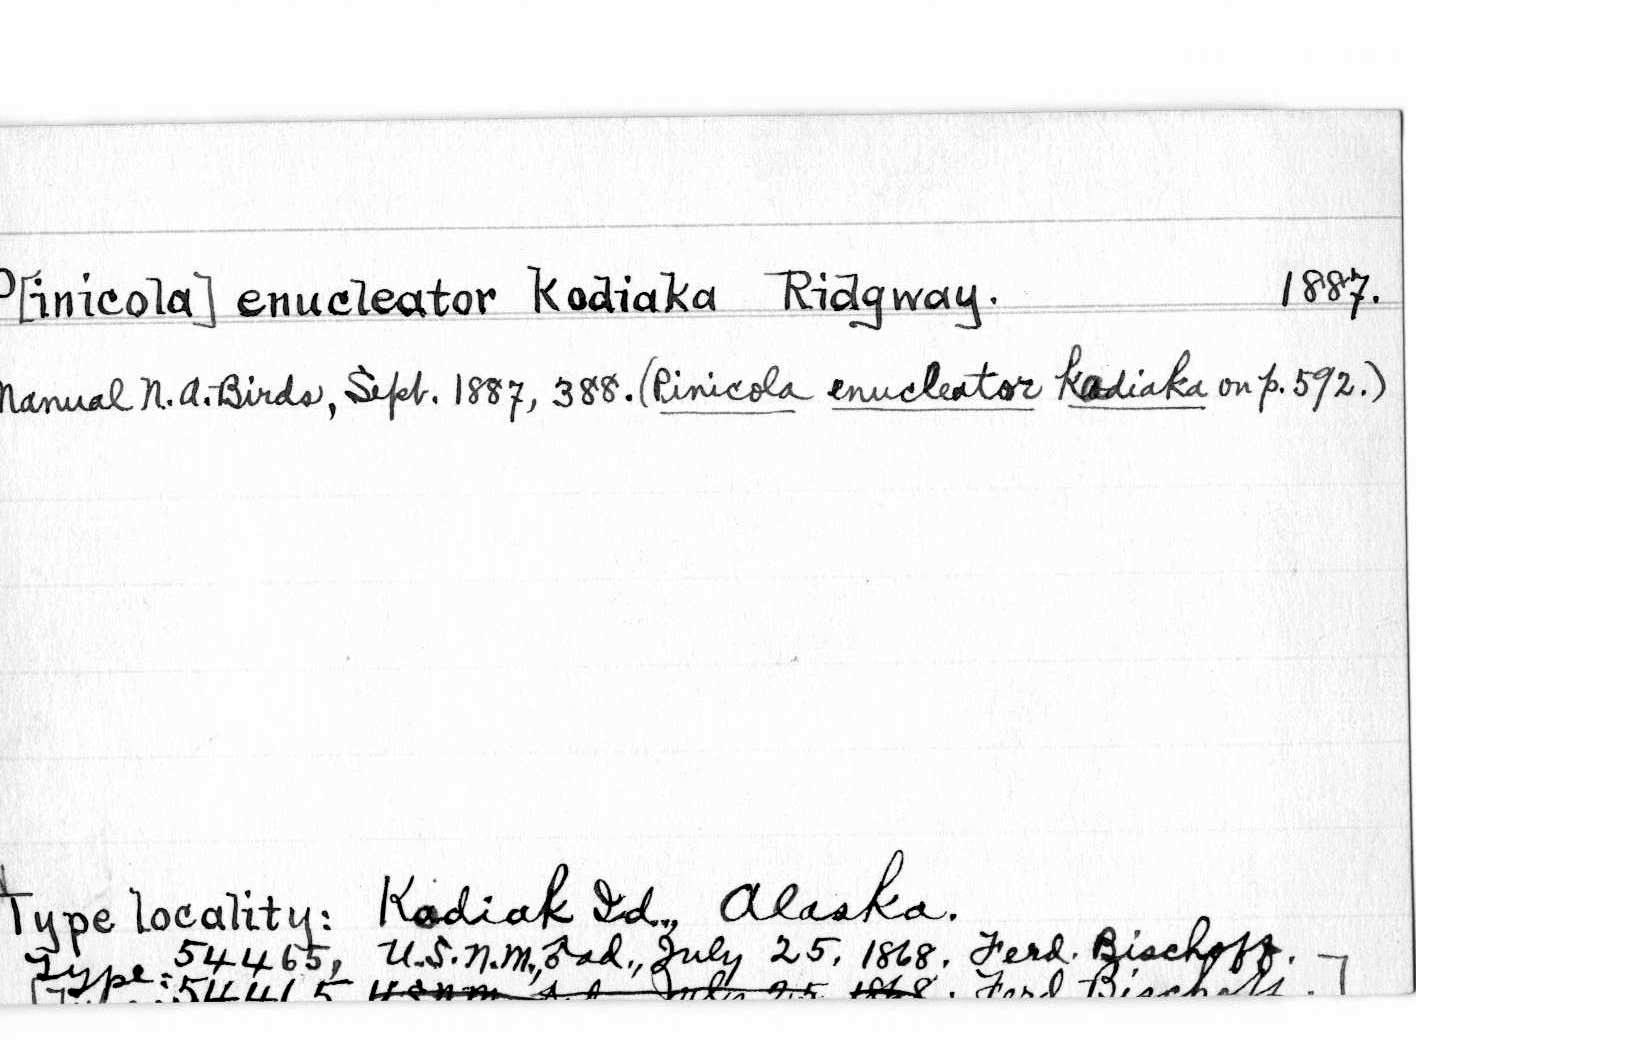 P[inicola] enucleator kodiaka Ridgway. 1887.
Manual N. A. Birds, Sept. 1887, 388. (Pinicola enucleator kadiaka on p. 592.)
Type locality: Kodiak Id., Alaska.
Type: 54465, U.S.N.M., ♂ ad., July 25, 1868. Ferd. Bischoff.
[Type: 54465 U.S.N.M., ad. July 25 1868. Ferd Bischoff.]